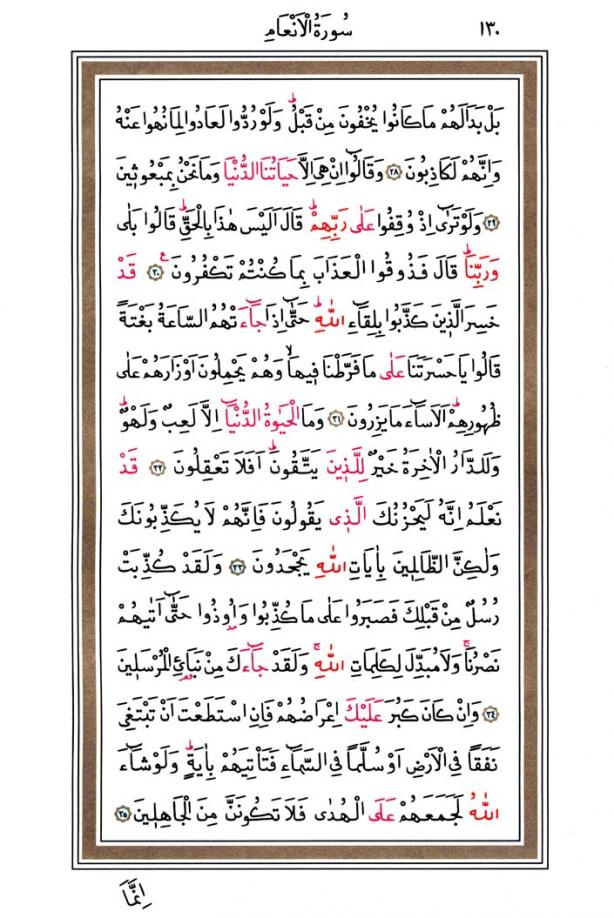 ١٣٠ سُورَةُ الْاَنْعَامِ
بَلْ بَدَالَهُمْ مَا كَانُوا يُخْفُونَ مِنْ قَبْلُۜ وَلَوْ رُدُّوا لَعَادُوا لِمَا نُهُوا عَنْهُ
وَاِنَّهُمْ لَكَاذِبُونَ ﴿٢٨﴾ وَقَالُٓوا اِنْ هِيَ اِلَّا حَيَاتُنَا الدُّنْيَا وَمَا نَحْنُ بِمَبْعُوث۪ينَ
﴿٢٩﴾ وَلَوْ تَرٰٓى اِذْ وُقِفُوا عَلٰى رَبِّهِمْۜ قَالَ اَلَيْسَ هٰذَا بِالْحَقِّۜ قَالُوا بَلٰى
وَرَبِّنَاۜ قَالَ فَذُوقُوا الْعَذَابَ بِمَا كُنْتُمْ تَكْفُرُونَ۟ ﴿٣٠﴾ قَدْ
خَسِرَ الَّذ۪ينَ كَذَّبُوا بِلِقَٓاءِ اللّٰهِۜ حَتّٰٓى اِذَا جَٓاءَتْهُمُ السَّاعَةُ بَغْتَةً
قَالُوا يَا حَسْرَتَنَا عَلٰى مَا فَرَّطْنَا ف۪يهَاۙ وَهُمْ يَحْمِلُونَ اَوْزَارَهُمْ عَلٰى
ظُهُورِهِمْۜ اَلَا سَٓاءَ مَا يَزِرُونَ ﴿٣١﴾ وَمَا الْحَيٰوةُ الدُّنْيَٓا اِلَّا لَعِبٌ وَلَهْوٌۜ
وَلَلدَّارُ الْاٰخِرَةُ خَيْرٌ لِلَّذ۪ينَ يَتَّقُونَۜ اَفَلَا تَعْقِلُونَ ﴿٣٢﴾ قَدْ
نَعْلَمُ اِنَّهُ لَيَحْزُنُكَ الَّذ۪ي يَقُولُونَ فَاِنَّهُمْ لَا يُكَذِّبُونَكَ
وَلٰكِنَّ الظَّالِم۪ينَ بِاٰيَاتِ اللّٰهِ يَجْحَدُونَ ﴿٣٣﴾ وَلَقَدْ كُذِّبَتْ
رُسُلٌ مِنْ قَبْلِكَ فَصَبَرُوا عَلٰى مَا كُذِّبُوا وَاُو۫ذُوا حَتّٰٓى اَتٰيهُمْ
نَصْرُنَاۚ وَلَا مُبَدِّلَ لِكَلِمَاتِ اللّٰهِۚ وَلَقَدْ جَٓاءَكَ مِنْ نَبَا۬ئِ الْمُرْسَل۪ينَ
﴿٣٤﴾ وَاِنْ كَانَ كَبُرَ عَلَيْكَ اِعْرَاضُهُمْ فَاِنِ اسْتَطَعْتَ اَنْ تَبْتَغِيَ
نَفَقًا فِي الْاَرْضِ اَوْ سُلَّمًا فِي السَّمَٓاءِ فَتَاْتِيَهُمْ بِاٰيَةٍۜ وَلَوْ شَٓاءَ
اللّٰهُ لَجَمَعَهُمْ عَلَى الْهُدٰى فَلَا تَكُونَنَّ مِنَ الْجَاهِل۪ينَ ﴿٣٥﴾
اِنَّمَا